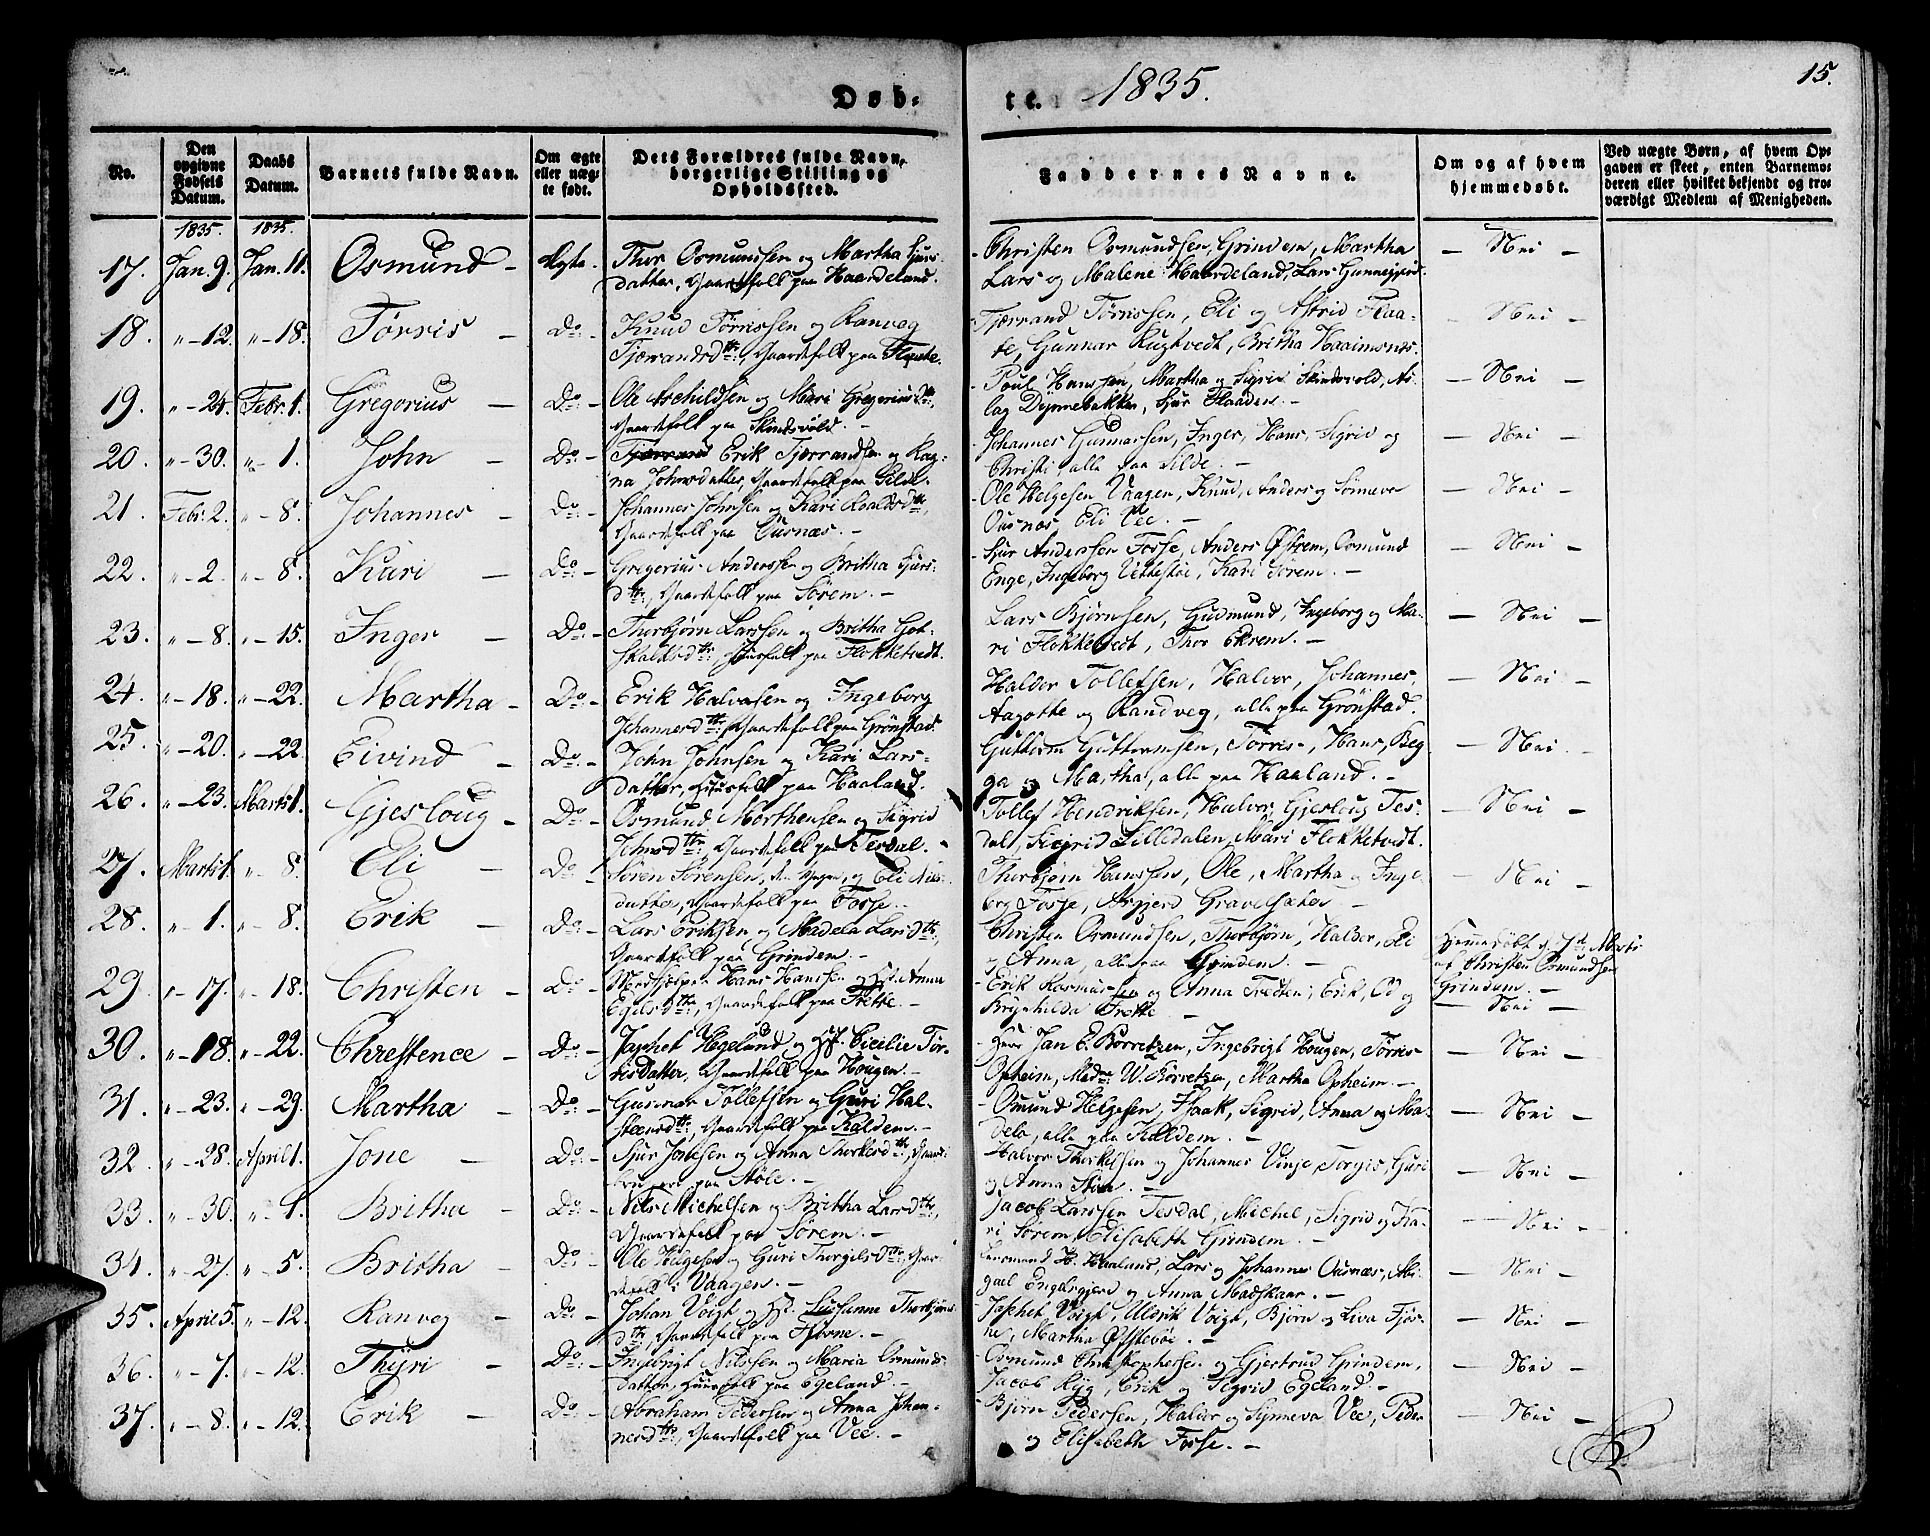 Døb-
te.
1835.
15.
No.
Den
opgivne
Fødsels
Datum.
Daabs
Datum.
Barnets fulde Navn.
Om ægte
eller uæg-
te født.
Dets Forældres fulde Navn,
borgerlige Stilling og
Opholdssted.
Faddernes Navne.
Om og af hvem
hjemmedøbt.
Ved uægte Børn, af hvem Op-
gaven er skeet, enten Barnemo-
deren eller hvilket bekjendt og tro-
værdigt Medlem af Menigheden.
1835. 1835.
17. Jan. 9. Jan. 11. Osmund - Ægte. Thor Osmundsen og Martha Sjurs
datter, Gaardsfolk paa Haardeland.
- Christen Osmundsen, Grindem, Martha
Lars og Malene Haardeland, Lars
- Nei -
18. " - 12. " - 18. Tørris - Do - Knud Tørrissen og Ranveg
Tjærandsdtr:, Gaardsfolk paa Flaate.
- Tjærrand Tørrissen, Eli og Astrid Flaa-
te, Gunnar Rugtvedt, Britha
- Nei -
19. " - 24. Febr. 1. Gregorius - Do - Ole Aschildsen og Mari Gregoriusdtr,
Gaardsfolk paa Skindsvold. -
- Poul Hanssen, Martha og Sigrid Skindsvold, As-
lag Dynnebakke, Sjur Flaaden. -
- Nei -
20. " - 30. " - 1. John - Do - Tjærrand Erik Tjærrandsen og Rag-
na Johnsdatter, Gaardsfolk paa Silde. -
- Johannes Gunnarsen, Inger, Hans, Sigrid og
Christi, alle paa Silde. -
- Nei -
21. Febr. 2. " - 8. Johannes - Do - Johannes Johnsen og Kari Roaldsdtr,
Gaardsfolk paa Ousnæs. -
- Ole Helgesen Vaagen, Knud, Anders og Sønneva
Ousnæs, Eli Vee. -
- Nei -
22. " - 2. " - 8. Kari - Do - Gregorius Anderssen og Britha Sjurs-
dtr:, Gaardsfolk paa Sørem. -
- Sjur Anderssen Fosse, Anders Østrem, Osmund
Enge, Ingeborg Vettestøe, Kari Sørem. -
- Nei -
23. " - 8. " - 15. Inger - Do - Thorbjørn Larssen og Britha Got-
skalksdtr: Huusfolk paa Flokketvedt.
Lars Bjørnsen, Gudmund, Ingeborg og Ma-
ri Flokketvedt, Thor Ekrem. -
- Nei -
24. " - 18. " - 22. Martha - Do - Erik Halvorsen og Ingeborg
Johannesdtr: Gaardsfolk paa Grønstad.
Haldor Tollefsen, Halvor, Johannes,
Aagothe og Randveg, alle paa Grønstad.
- Nei -
25. " - 20. " - 22. Eivind - Do - John Johnsen og Kari Lars-
datter, Huusfolk paa Haaland.
Guttorm Guttormsen, Tørris, Hans, Beg-
ga og Martha, alle paa Haaland. -
- Nei -
26. " - 23. Marts 1. Gjesloug - Do - Osmund Morthensen og Sigrid
Johnsdtr, Gaardsfolk paa Tesdal.
Tollef Hendriksen, Halvor, Gjesloug Tes-
dal, Sigrid Lilledalen, Mari Flokketvedt.
- Nei -
27. Marts 1. " - 8. Eli - Do Søren Sørensen, den Yngre, og Eli Nils-
datter, Gaardsfolk paa Fosse. -
Thorbjørn Hanssen, Ole, Martha og Inge-
borg Fosse, Argjerd Gravelsæter -
- Nei -
28. " - 1. " - 8. Erik - Do - Lars Eriksen og Madela Larsdtr,
Gaardsfolk paa Grindem. -
Christen Osmundsen, Thorbjørn, Haldor, Eli
og Anna, alle paa Grindem. -
Hjemmedøbt d. 1ste Marts
af Christen Osmundsen
Grindem. -
29. " - 17. " - 18. Christen - Do - Medhjelper Hans Hanssen og H. Anna
Egilsdtr, Gaardsfolk paa Trette. -
- Erik Rasmussen og Anna Tredten; Erik, Od og
Brynhilda Trette -
- Nei -
30. " - 18. " - 22. Chrestence - Do - Japhet Hegelund og H. Cicilie Tør-
risdatter, Gaardsfolk paa Hougen. -
- Herr Jan E. Børretzen, Ingebrigt Hougen, Tørris
Opheim, Made W. Børretzen, Martha Opheim. -
- Nei -
31. " - 23. " - 29. Martha - Do - Gunnar Tollefsen og Guri Hal-
steensdtr:, Gaardsfolk paa Kaldem. -
- Osmund Helgesen, Isaak, Sigrid, Anna og Ma-
dela, alle paa Kaldem. -
- Nei -
32. " - 28. April 1. Jone - Do - Sjur Jonesen og Anna Thorkelsdtr, Gaard-
brugere paa Støle. -
Halvor Thorkelsen og Johannes Vinje, Torgis, Guri
og Anna Støle. -
- Nei -
33. " - 30. " - 1. Britha - Do - Nils Michelsen og Britha Larsdtr,
Gaardsfolk paa Sørem. -
Jacob Larssen Tesdal, Michel, Sigrid og Ka-
ri Sørem, Elisabeth Grindem. -
- Nei -
34. " - 27. " - 5. Britha - Do - Ole Helgesen og Guri Thorgilsdtr, Gaar-
dsfolk i Vaagen. -
Hermund H. Haaland, Lars og Johannes Ousnæs, Abi-
gael Engebrigjerd og Anna Madskaar. -
- Nei -
35. April 5. " - 12. Ranveg - Do - Johan Voigt og H. Susanne Thorbjørns-
dtr, Gaardsfolk paa Fjøsne. -
- Japhet Voigt, Ulderik Voigt, Bjørn og Liva Fjøs-
ne, Martha Østevøe. -
- Nei -
36. " - 7. " - 12. Thyri - Do - Ingebrigt Nilssen og Maria Osmunds-
datter, Huusfolk paa Egeland. -
- Osmund Christophersen og Gjertrud Grindem,
Jacob Ryg, Erik og Sigrid Egeland. -
- Nei -
37. " - 8. " - 12. Erik - Do - Abraham Pedersen og Anna Johan-
nesdtr, Gaardsfolk paa Vee. -
- Bjørn Pedersen, Haldor og Synneva Vee, Peder
og Elisabeth Fosse. -
- Nei -